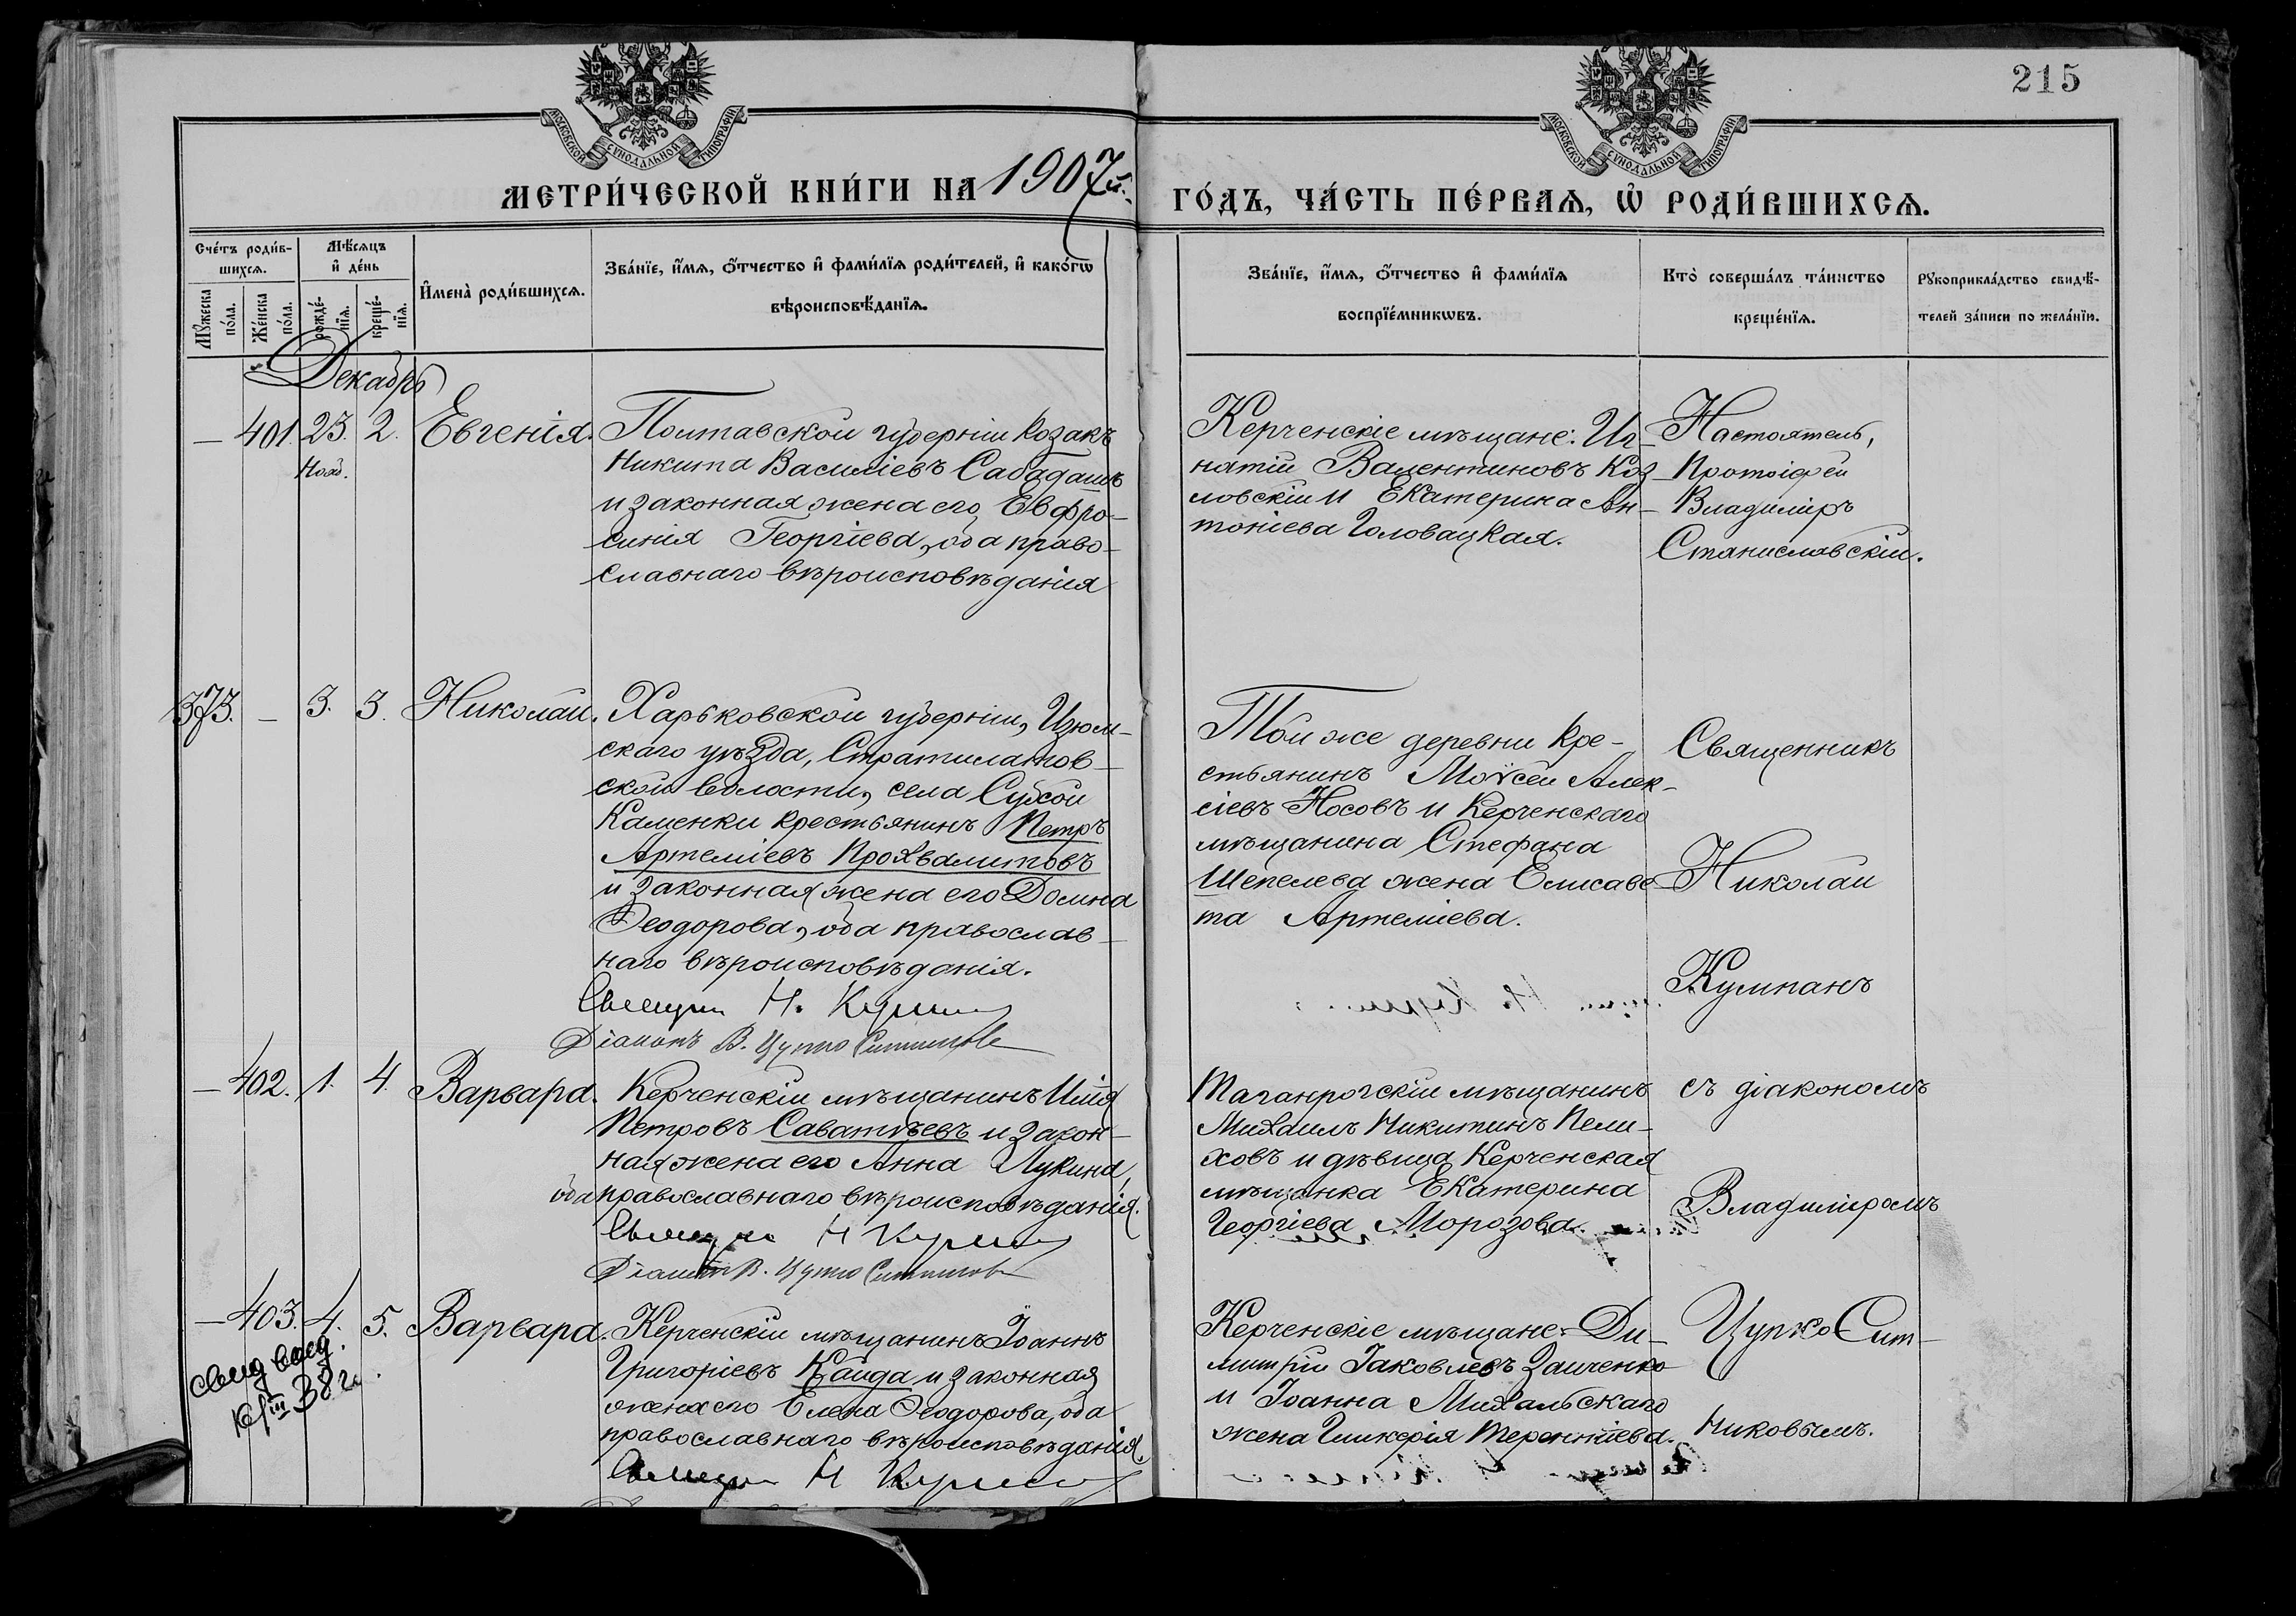 215
МОСКОВСКОЙ СѴНОДАЛЬНОЙ ТИПОГРАФІИ
МОСКОВСКОЙ СѴНОДАЛЬНОЙ ТИПОГРАФІИ
МЕТРИ́ЧЕСКОЙ КНИ́ГИ НА 1907й.
ГО́ДЪ, ЧА́СТЬ ПЕ́РВАѦ, Ѡ҆ РОДИ́ВШИХСѦ.
Сче́тъ роди́в-
шихсѧ.
Мꙋ́жеска по́ла.
Же́нска по́ла.
Мѣ́сѧцъ
и҆ де́нь
рожде́-
нїѧ.
креще́-
нїѧ.
И҆мена̀ роди́вшихсѧ.
Зва́нїе, и҆́мѧ, ѻ҆́тчество и҆ фами́лїѧ роди́телей, и҆ како́гѡ
вѣроисповѣ́данїѧ.
Зва́нїе, и҆́мѧ, ѻ҆́тчество и҆ фами́лїѧ
воспрїе́мникѡвъ.
Кто̀ соверша́лъ та́инство
креще́нїѧ.
Рꙋкоприкла́дство свидѣ́-
телей за́писи по жела́нїю.
Декабрь
— 401. 23. 2. Евгенія.
Нояб.
Полтавской губерніи козакъ
Никита Василіевъ Сабадашъ
и законная жена его Евфро-
синія Георгіева, оба право-
славнаго вѣроисповѣданія
Керченскіе мѣщане: Иг-
натій Валентиновъ Коз-
ловскій и Екатерина Ан-
тоніева Головацкая.
Настоятель,
Протоіерей
Владиміръ
Станиславскій.
373. — 3. 3. Николай.
Харьковской губерніи, Изюм-
скаго уѣзда, Стратилатов-
ской волости, села Сухой
Каменки крестьянинъ Петръ
Артеміевъ Прохвалитовъ
и законная жена его Домна
Ѳеодорова, оба православ-
наго вѣроисповѣданія.
Священ. Н. Кумпанъ
Діаконъ В. Цупко Ситниковъ
Той же деревни кре-
стьянинъ Моѵсей Алек-
сіевъ Носовъ и Керченскаго
мѣщанина Стефана
Шепелева жена Елисаве-
та Артеміева.
Священникъ
Николай
Кумпанъ
— 402. 1. 4. Варвара.
Керченскій мѣщанинъ Илія
Петровъ Саватѣевъ и закон-
ная жена его Анна Лукина,
оба православнаго вѣроисповѣданія.
Священ. Н Кумпанъ
Діаконъ В. Цупко Ситниковъ
Таганрогскій мѣщанинъ
Михаилъ Никитинъ Пели-
ховъ и дѣвица Керченская
мѣщанка Екатерина
Георгіева Морозова.
съ діакономъ
Владиміромъ
— 403. 4. 5. Варвара.
38 г.
Керченскій мѣщанинъ Іоаннъ
Григоріевъ Кайда и законная
жена его Елена Ѳеодорова, оба
православнаго вѣроисповѣданія.
Священ. Н Кумпанъ
Керченскіе мѣщане: Ди-
митрій Іаковлевъ Заиченко
и Іоанна Михальскаго
жена Гликерія Терентіева.
Цупко Сит-
никовымъ.